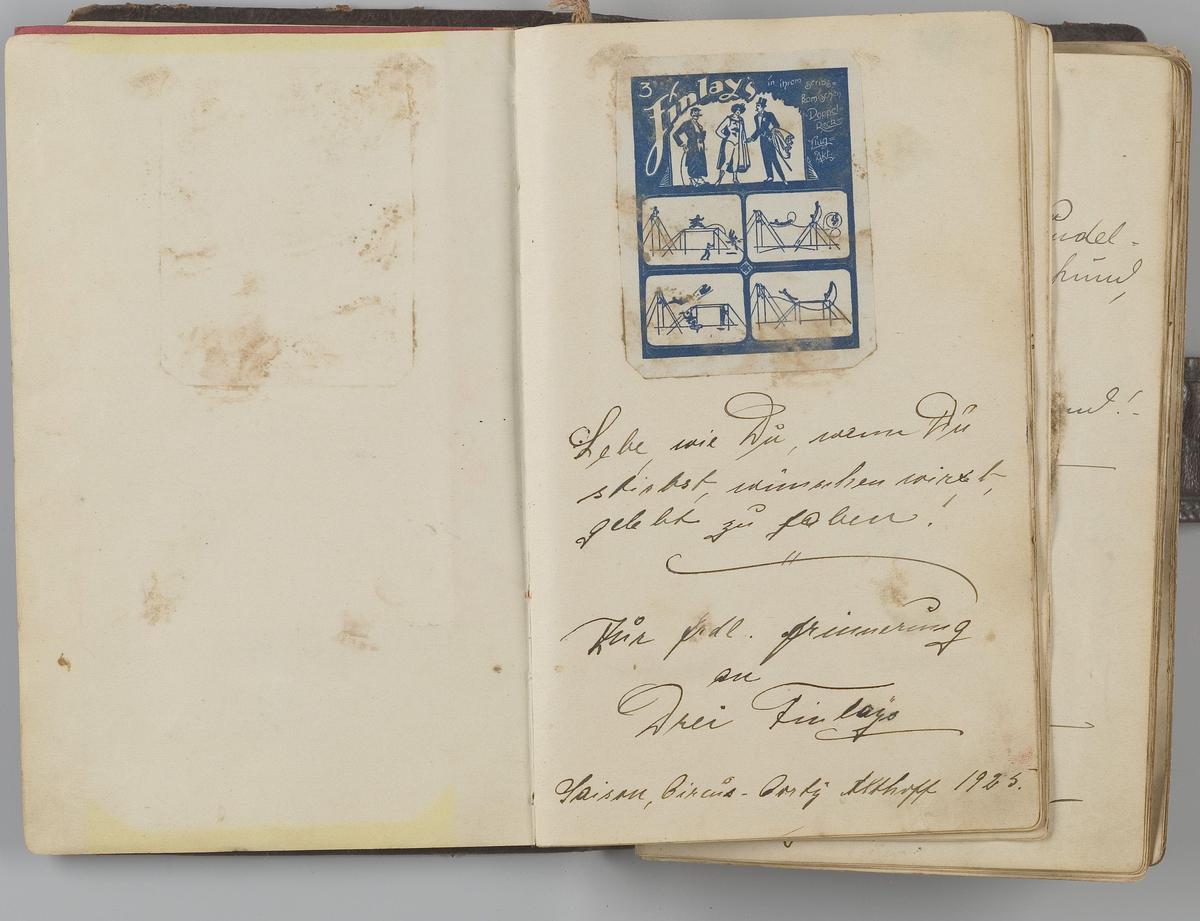 3 Finlay's
in ihrem
komischen
Doppel
Reck
Flug
Akt
Lebe, wie Du, wenn Du
stirbst, wünschen wirst,
gelebt zu haben!
Zur frdl. Erinnerung
an
Drei Finlays
Saison, Circus-Corty Althoff 1925.
Pudel-
hund,